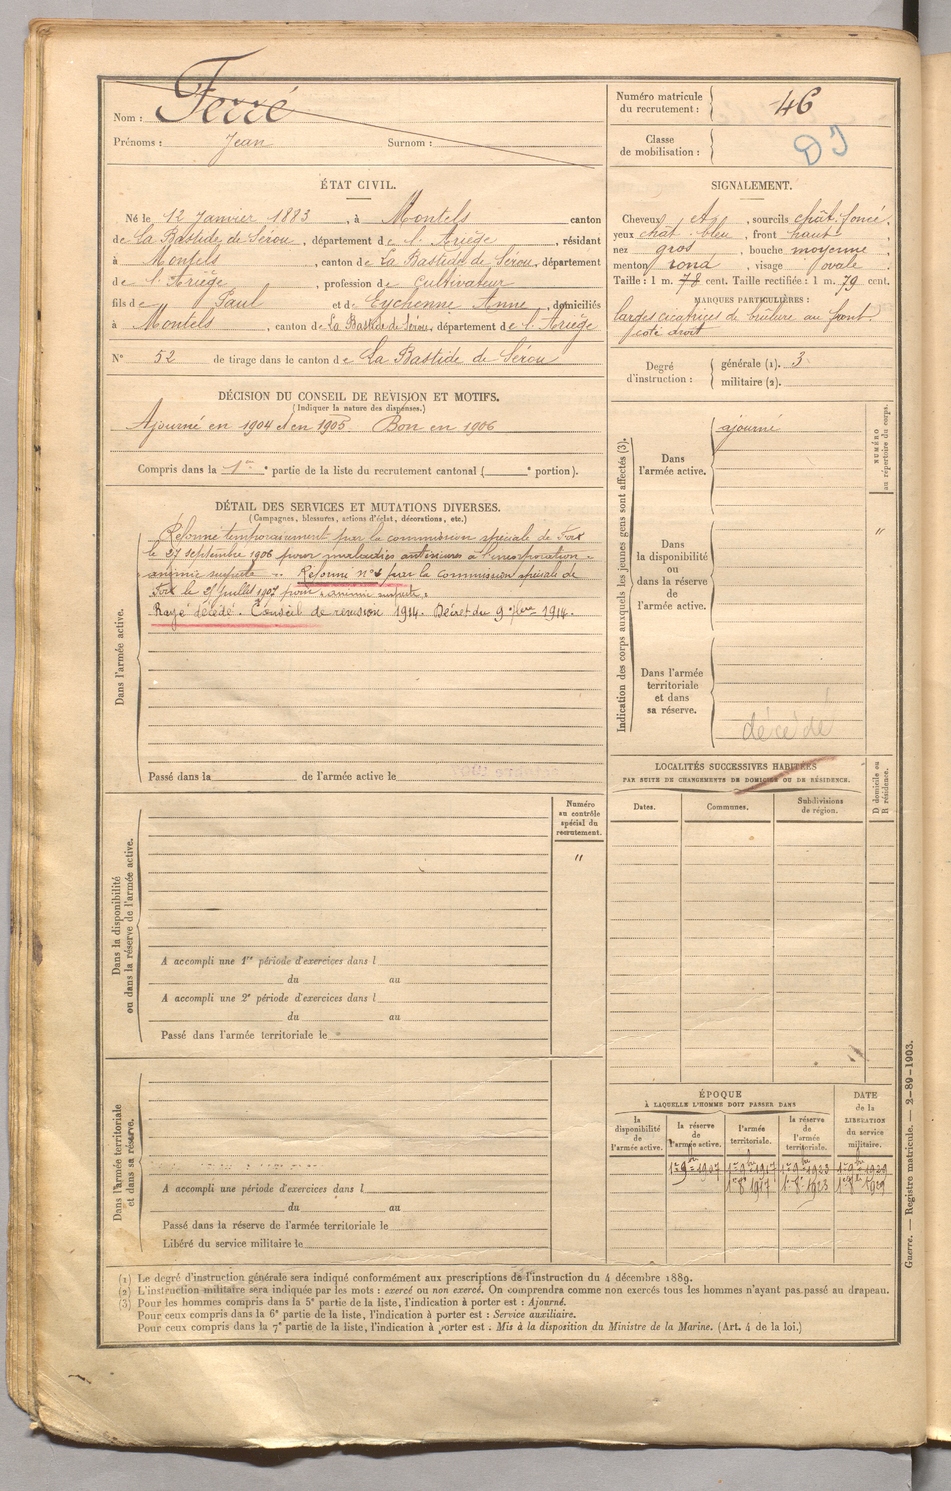 Nom : Ferré
Prénoms : Jean Surnom :
Numéro matricule du recrutement : 46
Classe de mobilisation :
ÉTAT CIVIL.
Né le 12 Janvier 1883, à Montels canton
de La Bastide de Sérou, département de l'Ariège, résidant
à Montels, canton de La Bastide de Sérou, département
de l'Ariège, profession de cultivateur
fils de Paul et de Eychenne Anne, domiciliés
à Montels, canton de La Bastide de Sérou, département de l'Ariège
N° 52 de tirage dans le canton de La Bastide de Sérou
SIGNALEMENT.
Cheveux, sourcils chât. foncé,
yeux chât. bleu, front haut,
nez gros, bouche moyenne,
menton rond, visage ovale.
Taille : 1 m. 78 cent. Taille rectifiée : 1 m. 79 cent.
MARQUES PARTICULIÈRES :
larges cicatrices de brûlure au front
côté droit
Degré d'instruction : générale (1). 3
militaire (2).
DÉCISION DU CONSEIL DE RÉVISION ET MOTIFS.
(Indiquer la nature des dispenses.)
Ajourné en 1904 et en 1905 Bon en 1906
Compris dans la 1re partie de la liste du recrutement cantonal ( e portion).
DÉTAIL DES SERVICES ET MUTATIONS DIVERSES.
(Campagnes, blessures, actions d'éclat, décorations, etc.)
Dans l'armée active.
Réformé temporairement par la commission spéciale de Foix
le 27 septembre 1906 pour maladies antérieures à l'incorporation "
anémie suspecte ". Réformé n° par la commission spéciale de
Foix le Juillet 1907 pour "anémie suspecte"
Rayé décédé. Conseil de révision 1914. Décret du 9 7bre 1914.
Passé dans la de l'armée active le
Indication des corps auxquels les jeunes gens sont affectés (3).
NUMÉRO au répertoire du corps.
Dans l'armée active.
ajourné
Dans la disponibilité ou dans la réserve de l'armée active.
"
Dans l'armée territoriale et dans sa réserve.
décédé
LOCALITÉS SUCCESSIVES HABITÉES
PAR SUITE DE CHANGEMENTS DE DOMICILE OU DE RÉSIDENCE.
D domicile ou R résidence.
Dates. Communes. Subdivisions de région.
Dans la disponibilité ou dans la réserve de l'armée active.
Numéro au contrôle spécial du recrutement.
"
A accompli une 1re période d'exercices dans l
du au
A accompli une 2e période d'exercices dans l
du au
Passé dans l'armée territoriale le
Dans l'armée territoriale et dans sa réserve.
A accompli une période d'exercices dans l
du au
Passé dans la réserve de l'armée territoriale le
Libéré du service militaire le
ÉPOQUE
À LAQUELLE L'HOMME DOIT PASSER DANS
DATE de la LIBÉRATION du service militaire.
la disponibilité de l'armée active. la réserve de l'armée active. l'armée territoriale. la réserve de l'armée territoriale.
(1) Le degré d'instruction générale sera indiqué conformément aux prescriptions de l'instruction du 4 décembre 1889.
(2) L'instruction militaire sera indiquée par les mots : exercé ou non exercé. On comprendra comme non exercés tous les hommes n'ayant pas passé au drapeau.
(3) Pour les hommes compris dans la 5e partie de la liste, l'indication à porter est : Ajourné.
Pour ceux compris dans la 6e partie de la liste, l'indication à porter est : Service auxiliaire.
Pour ceux compris dans la 7e partie de la liste, l'indication à porter est : Mis à la disposition du Ministre de la Marine. (Art. 4 de la loi.)
Guerre. — Registre matricule. — 2-89-1903.